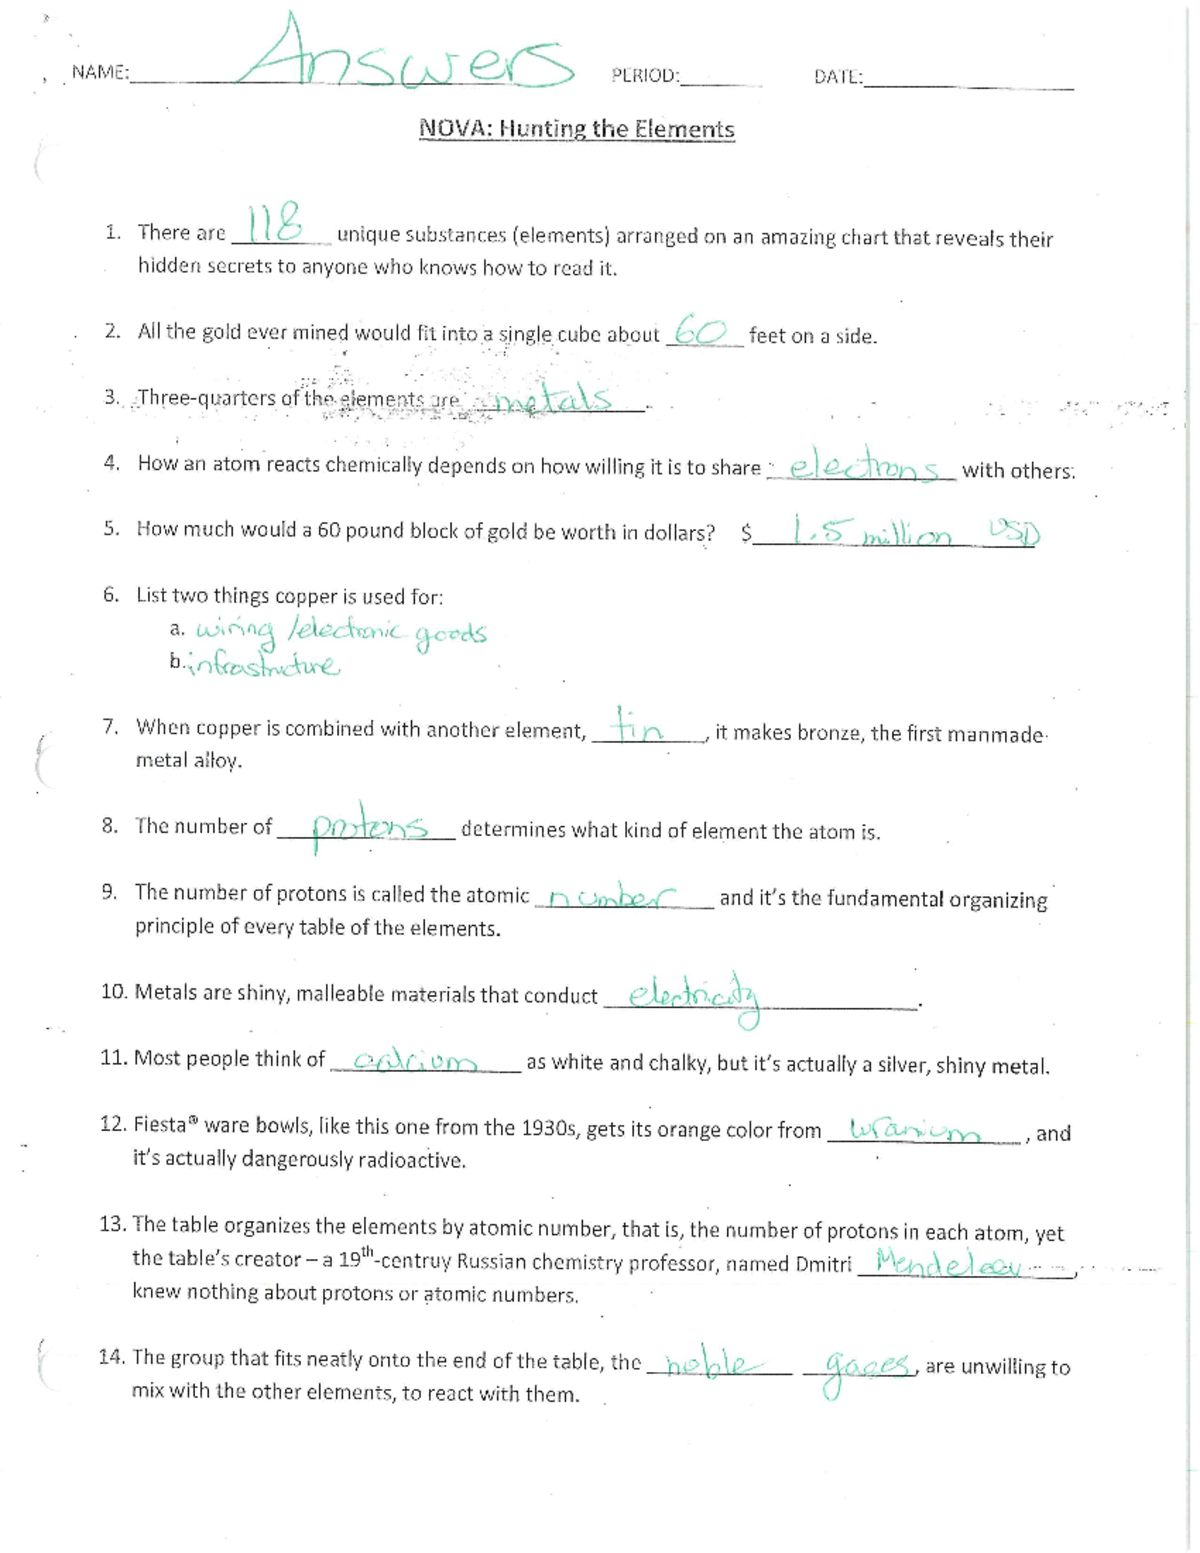 NAME: Answers PERIOD: DATE:
NOVA: Hunting the Elements
1. There are 118 unique substances (elements) arranged on an amazing chart that reveals their
hidden secrets to anyone who knows how to read it.
2. All the gold ever mined would fit into a single cube about 60 feet on a side.
3. Three-quarters of the elements are metals.
4. How an atom reacts chemically depends on how willing it is to share electrons with others.
5. How much would a 60 pound block of gold be worth in dollars? $ 1.5 million USD
6. List two things copper is used for:
a. wiring /electronic goods
b. infrastructure
7. When copper is combined with another element, tin, it makes bronze, the first manmade
metal alloy.
8. The number of protons determines what kind of element the atom is.
9. The number of protons is called the atomic number and it's the fundamental organizing
principle of every table of the elements.
10. Metals are shiny, malleable materials that conduct electricity.
11. Most people think of calcium as white and chalky, but it's actually a silver, shiny metal.
12. Fiesta® ware bowls, like this one from the 1930s, gets its orange color from uranium, and
it's actually dangerously radioactive.
13. The table organizes the elements by atomic number, that is, the number of protons in each atom, yet
the table's creator – a 19th-centruy Russian chemistry professor, named Dmitri Mendeleev,
knew nothing about protons or atomic numbers.
14. The group that fits neatly onto the end of the table, the noble gases, are unwilling to
mix with the other elements, to react with them.